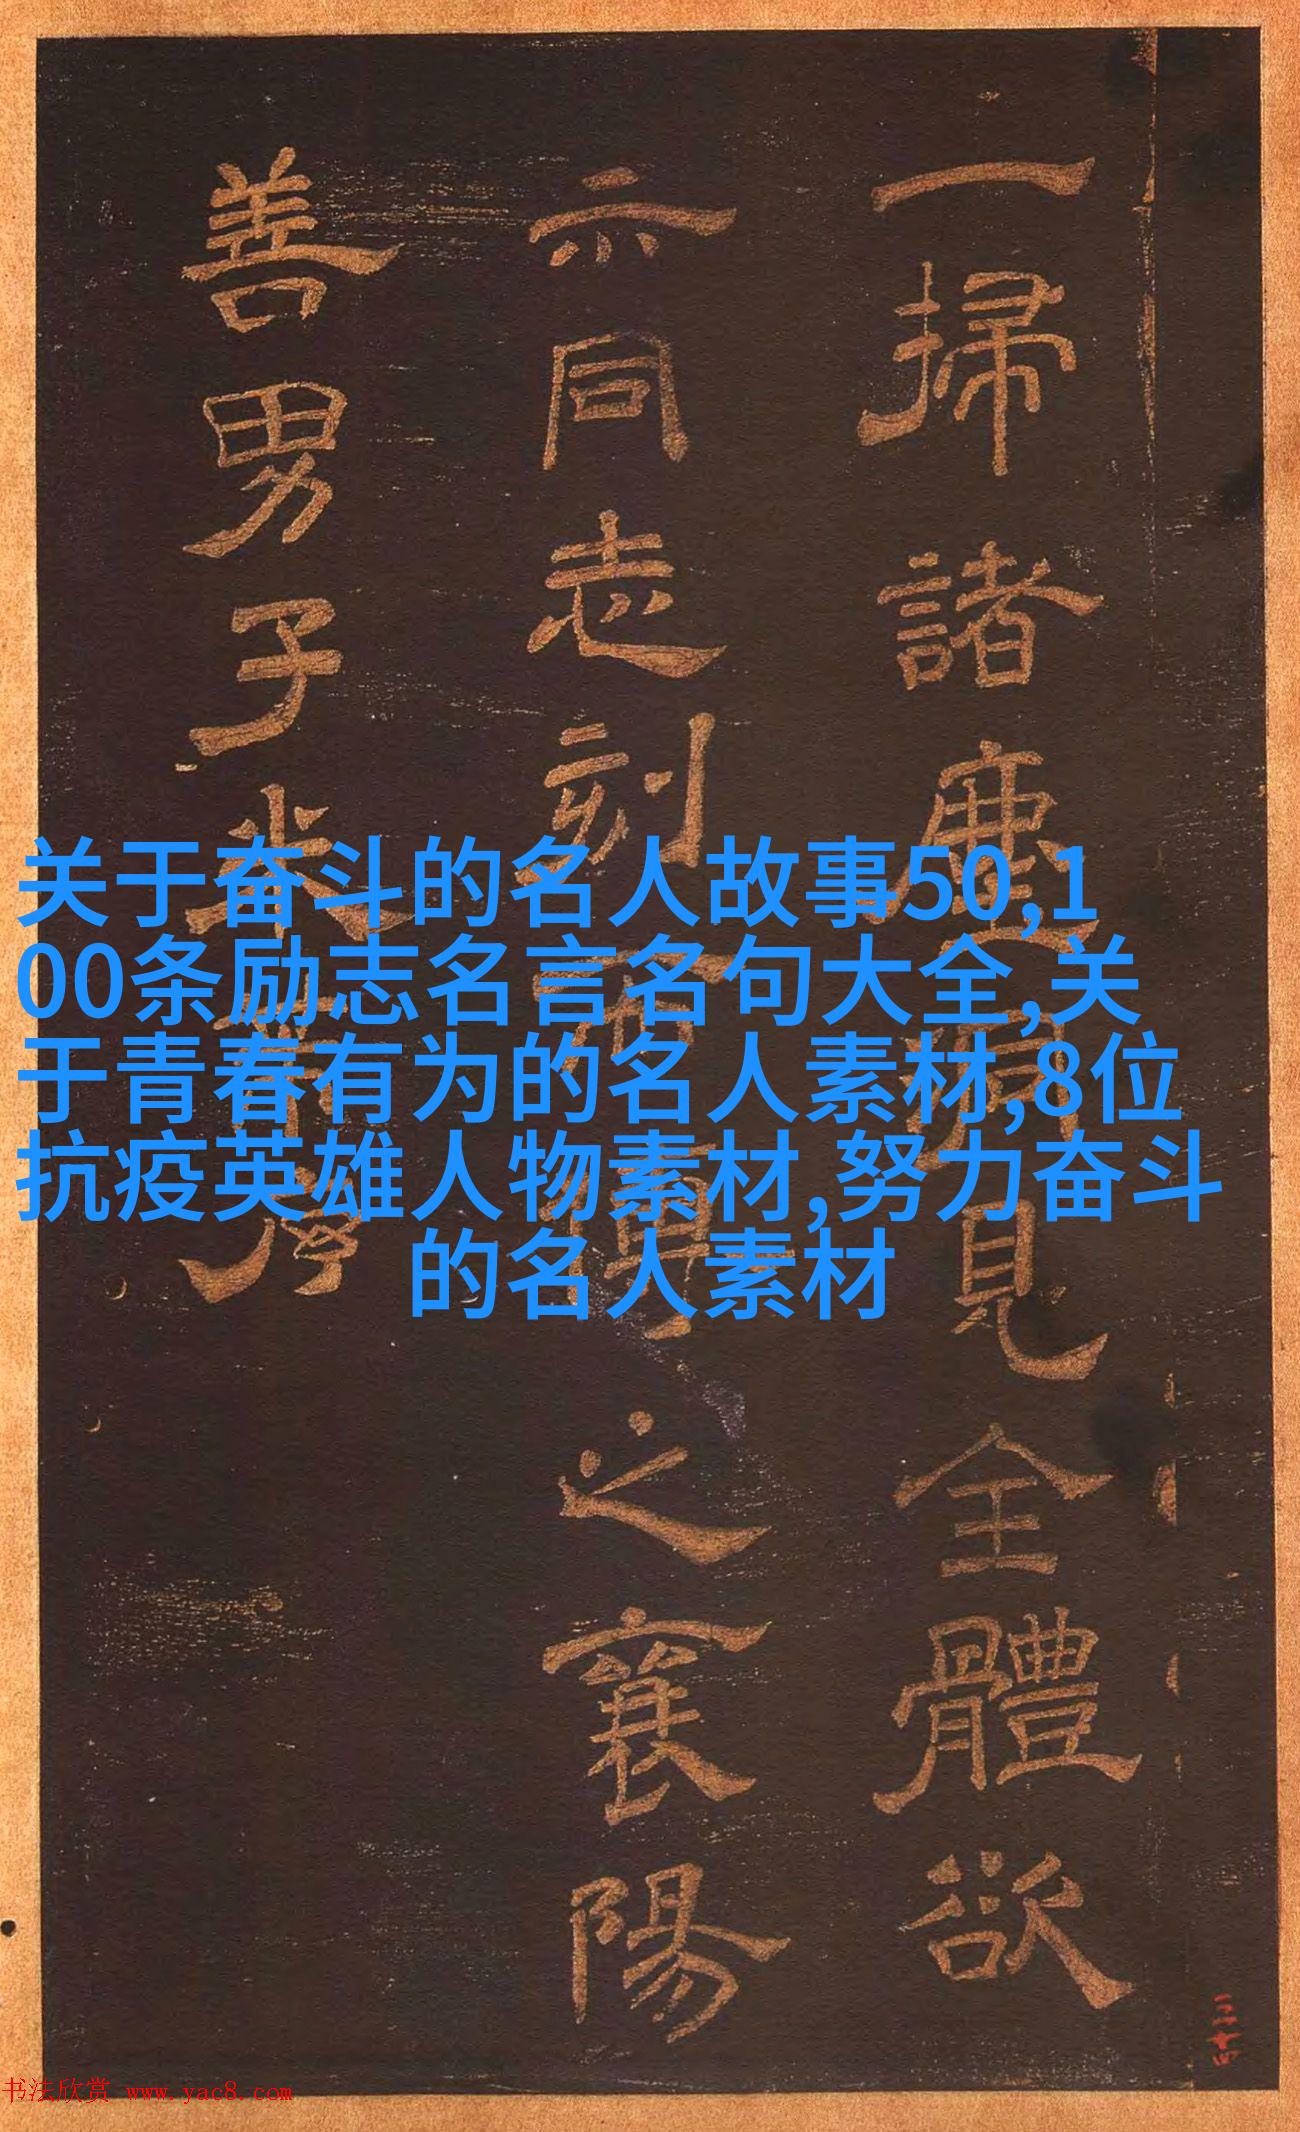 一掃諸塵見全體欲
示同志刻而傳之襄陽
善男子米
关于奋斗的名人故事50,1
00条励志名言名句大全,关
于青春有为的名人素材,8位
抗疫英雄人物素材,努力奋斗
的名人素材
书法欣赏 www.yac8.com